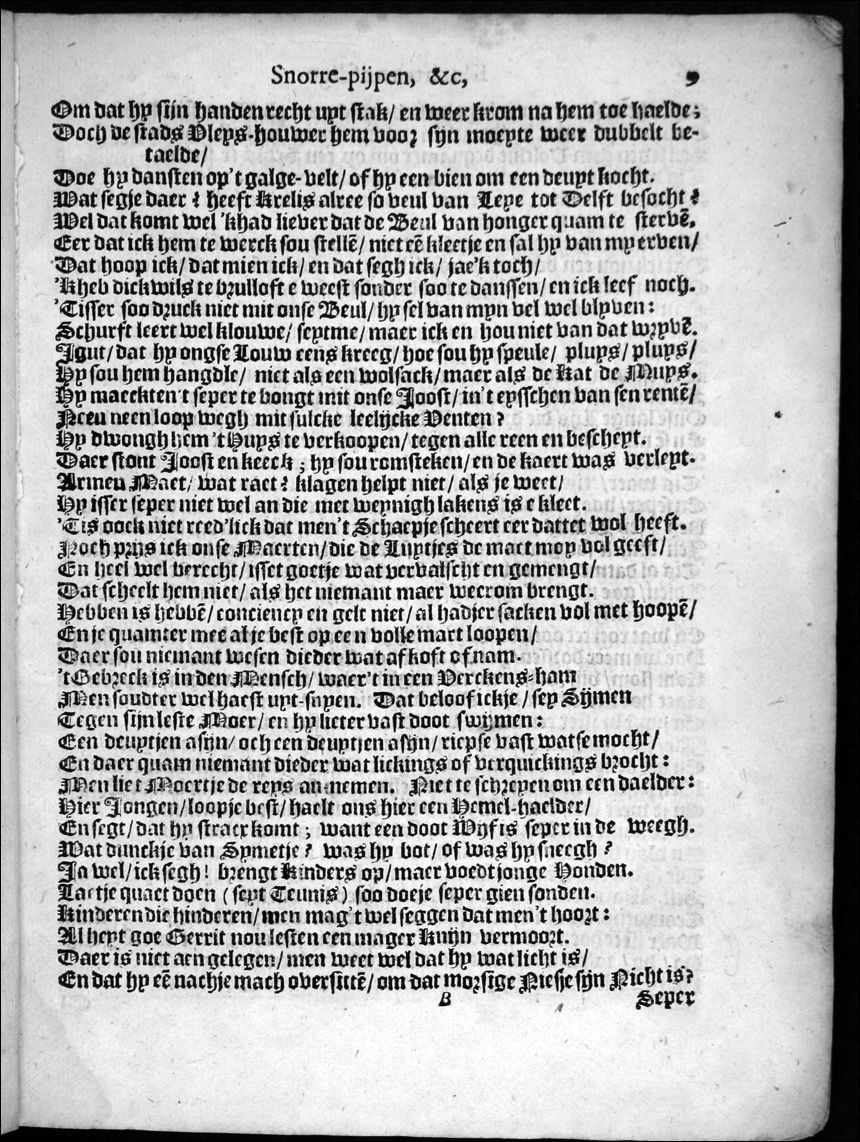 Snorre-pijpen, &c, 9
Om dat hy sijn handen recht uyt stak/ en weer krom na hem toe haelde;
Doch de stads Vleys-houwer hem voor syn moeyte weer dubbelt be-
taelde/
Doe hy dansten op't galge-velt/ of hy een bien om een deuyt kocht.
Wat segje daer? heeft Krelis alree so veul van Leye tot Delft besocht?
Wel dat komt wel 'khad liever dat de Beul van honger quam te stervē.
Eer dat ick hem te werck sou stellē/ niet eē kleetje en sal hy van my erven/
Dat hoop ick/ dat mien ick/ en dat segh ick/ jae'k toch/
'Kheb dickwils te brulloft e weest sonder soo te danssen/ en ick leef noch.
'Tisser soo druck niet mit onse Beul/ hy sel van myn vel wel blyven:
Schurft leert wel klouwe/ seytme/ maer ick en hou niet van dat wryvē.
Jgut/ dat hy ongse Louw eens kreeg/ hoe sou hy speule/ pluys/ pluys/
Hy sou hem hangdle/ niet als een wolsack/ maer als de Kat de Muys.
Hy maeckten't seper te bongt mit onse Joost/ in't eysschen van sen rentē/
Neeu neen loop wegh mit sulcke leelijcke Venten?
Hy dwongh hem 't Huys te verkoopen/ tegen alle reen en bescheyt.
Daer stont Joost en keeck; hy sou romsteken/ en de kaert was verleyt.
Armen Maet/ wat raet? klagen helpt niet/ als je weet/
Hy isser seper niet wel an die met weynigh lakens is e kleet.
'Tis oock niet reed'lick dat men't Schaepje scheert eer dattet wol heeft.
Noch prijs ick onse Maerten/ die de Luytjes de maet moy vol geeft/
En heel wel verecht/ isset goetje wat vervalscht en gemengt/
Dat scheelt hem niet/ als het niemant maer weerom brengt.
Hebben is hebbē/ conciency en gelt niet/ al hadjer sacken vol met hoopē/
En je quamter mee al je best op een volle mart loopen/
Daer sou niemant wesen dieder wat af koft of nam.
't Gebreck is in den Mensch/ waer't in een Verckens-ham
Men soudter wel haest uyt-snyen. Dat beloof ickje/ sey Sijmen
Tegen sijn leste Moer/ en hy lieter vast doot swijmen:
Een deuytjen asijn/ och een deuytjen asijn/ riepse vast watse mocht/
En daer quam niemant dieder wat lickings of verquickings brocht:
Men liet Moertje de reys an-nemen. Niet te schreyen om een daelder:
Hier Jongen/ loopje best/ haelt ons hier een Hemel-haelder/
En segt/ dat hy stracx komt; want een doot Wyf is seper in de weegh.
Wat dunckje van Symetje? was hy bot/ of was hy sneegh?
Ja wel/ ick segh! brengt Kinders op/ maer voedt jonge Honden.
Laetje quaet doen (seyt Teunis) soo doeje seper gien sonden.
Kinderen die hinderen/ men mag't wel seggen dat men't hoort:
Al heyt goe Gerrit nou lesten een mager Knijn vermoort.
Daer is niet aen gelegen/ men weet wel dat hy wat licht is/
En dat hy eē nachje mach oversittē/ om dat morsige Niesje sijn Nicht is?
B Seper